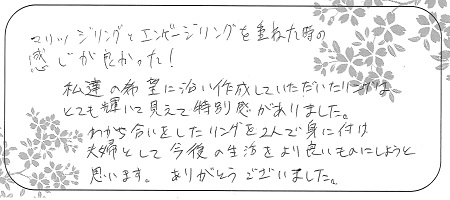 マリッジリングとエンゲージリングを重ねた時の
感じが良かった！
私達の希望に沿い作成していただいたリングは
とても輝いて見えて特別感がありました。
わかち合いをしたリングを2人で身に付け
夫婦として今後の生活をより良いものにしようと
思います。ありがとうございました。